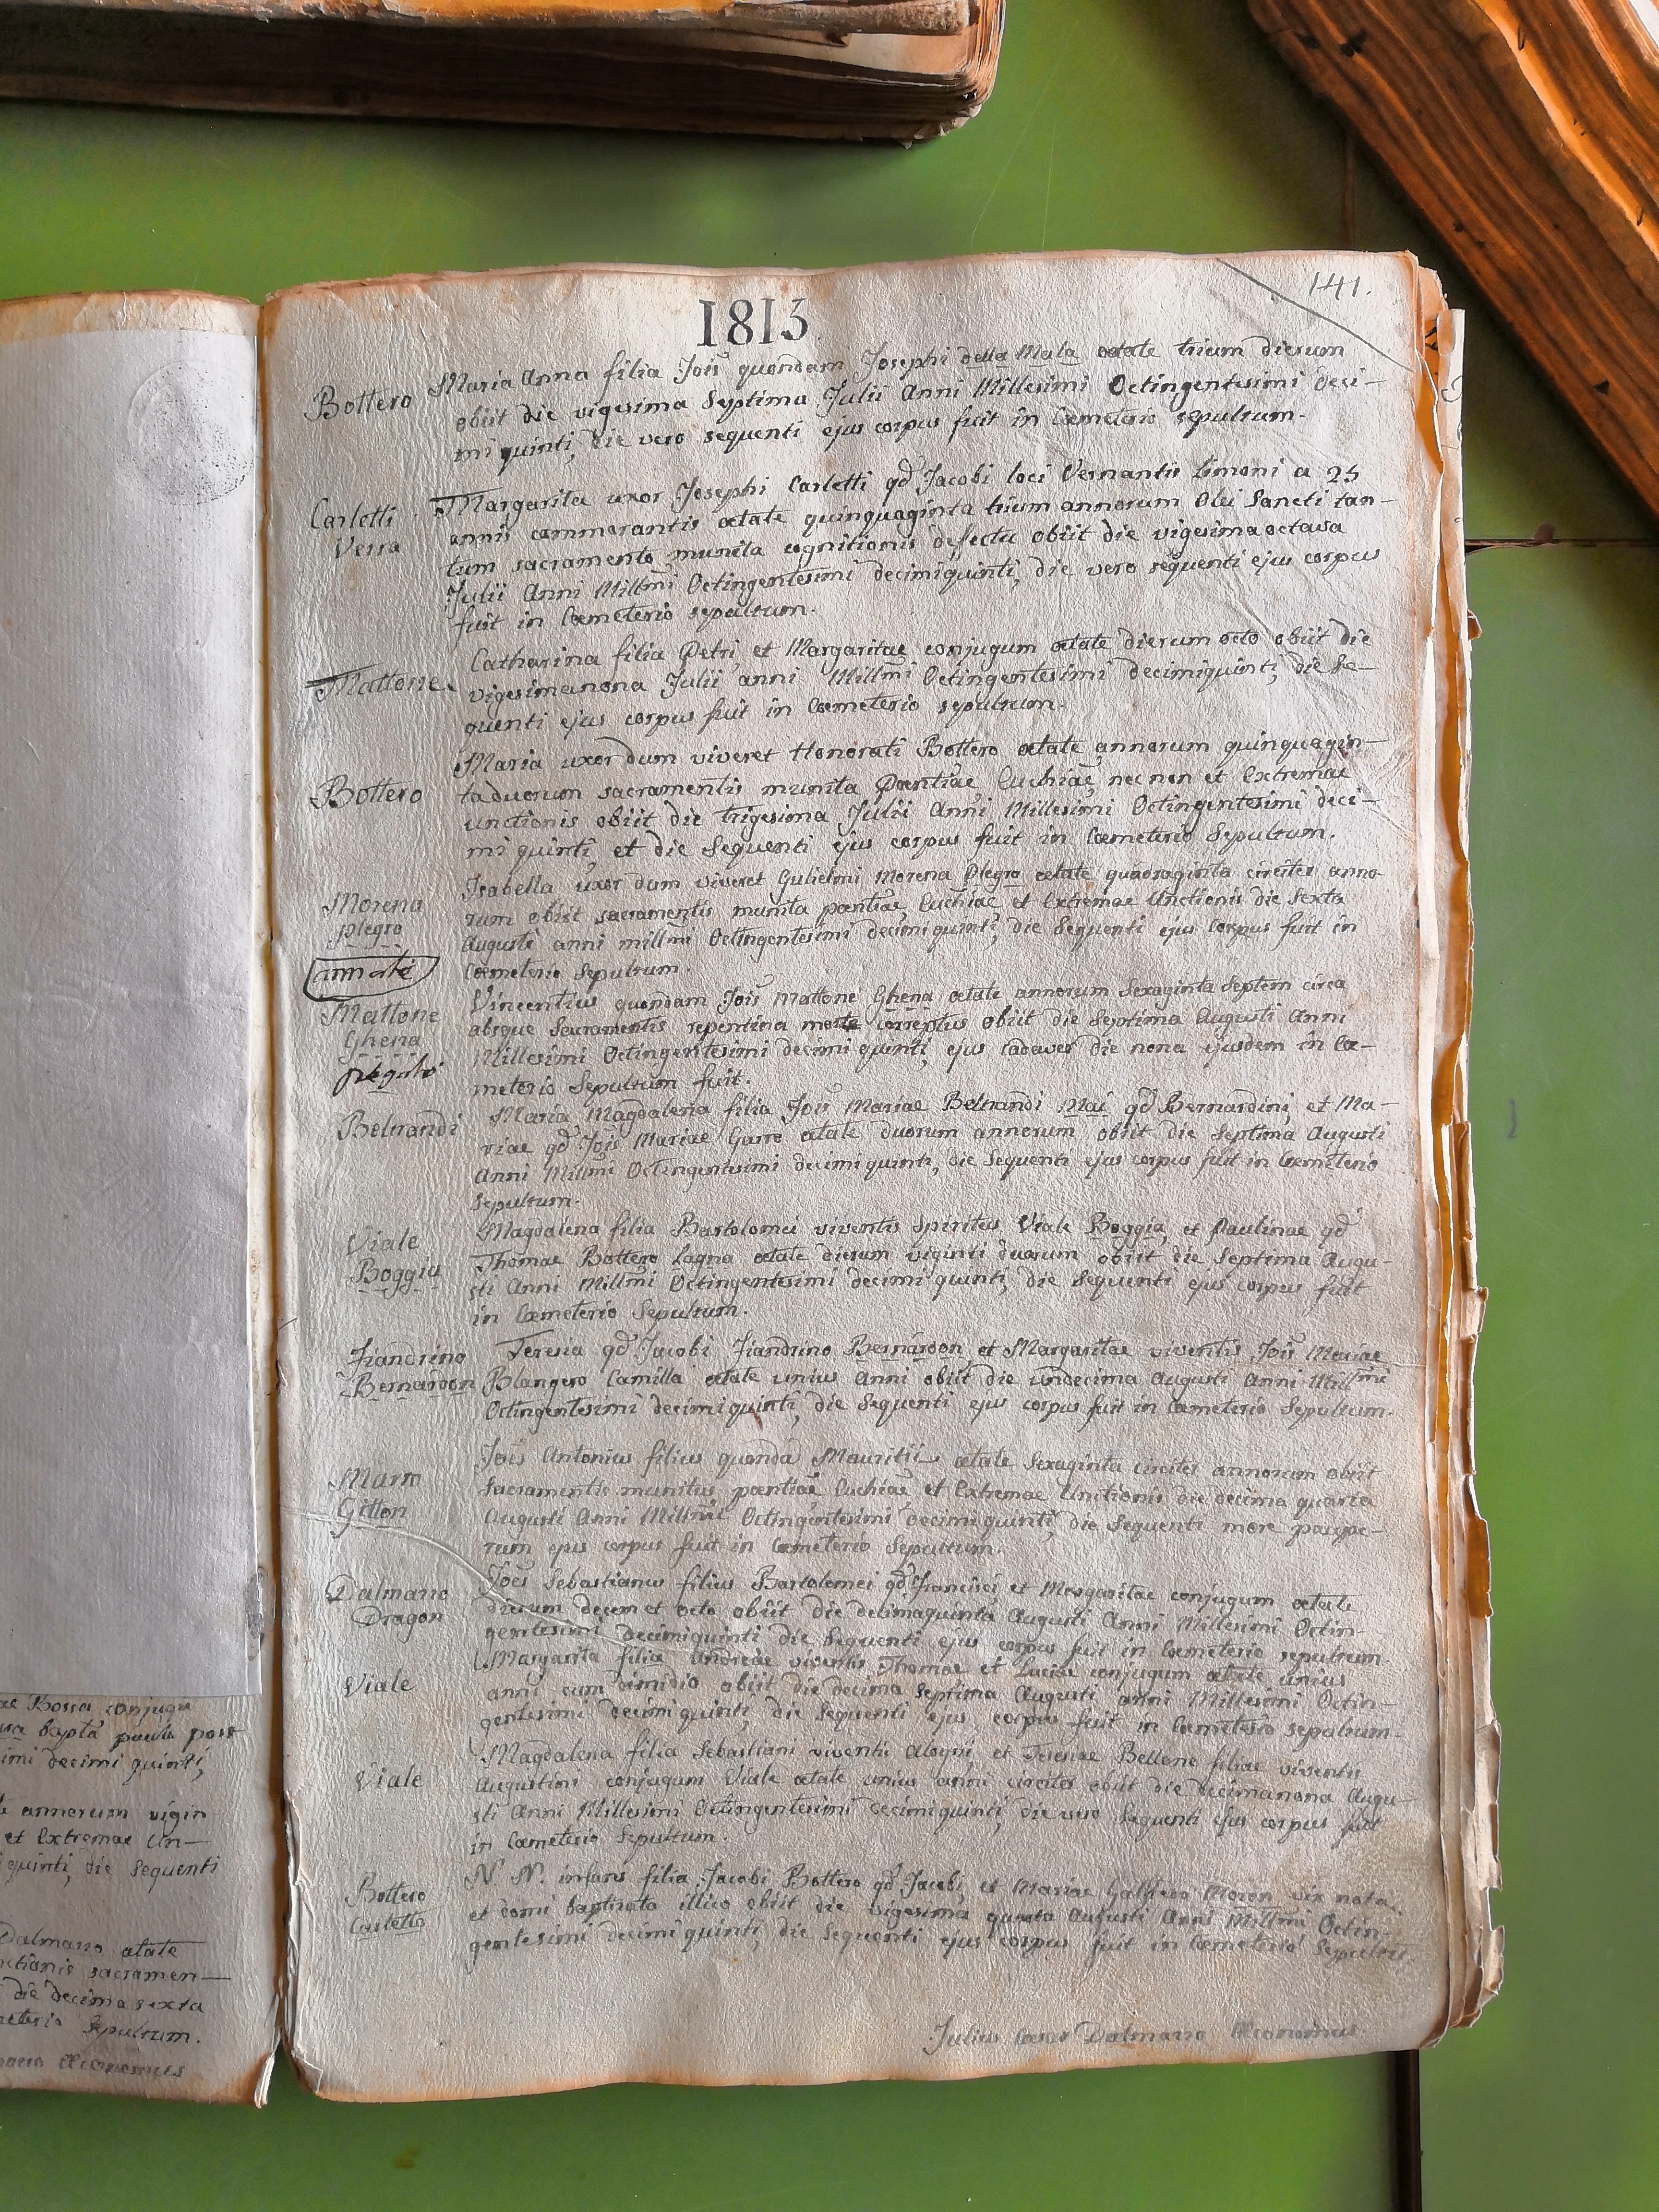 141.
1815
Bottero
Maria Anna filia Jois quondam Josephi della Mala ætate trium dierum
obiit die vigesima Septima Julii Anni Millesimi Octingentesimi deci-
mi quinti, die vero sequenti ejus corpus fuit in Cœmeterio sepultum.
Carletti
Verra
Margarita uxor Josephi Carletti qd Jacobi loci Vernantis Limoni a 25
annis commorantis ætate quinquaginta trium annorum Olei Sancti tan-
tum sacramento munita cognitionis defectu obiit die vigesima octava
Julii Anni Millmi Octingentesimi decimiquinti, die vero sequenti ejus corpus
fuit in Cœmeterio sepultum.
Mattone
Catharina filia Petri, et Margaritae conjugum ætate dierum octo obiit die
vigesimanona Julii anni Millmi Octingentesimi decimiquinti, die Se-
quenti ejus corpus fuit in Cœmeterio sepultum.
Bottero
Maria uxor dum viveret Honorati Bottero ætate annorum quinquagin-
taduorum sacramentis munita Pœntiae, Euchiae, nec non et Extremae
unctionis obiit die trigesima Julii Anni Millesimi Octingentesimi deci-
mi quinti, et die Sequenti ejus corpus fuit in Cœmeterio Sepultum.
Morena
Plegro
Isabella uxor dum viveret Gulielmi Morena Plegro ætate quadraginta circiter anno-
rum obiit sacramentis munita pœntiae, Euchiae et Extremae Unctionis die Sexta
Augusti anni millmi Octingentesimi decimi quinti, die Sequenti ejus Corpus fuit in
Cœmeterio Sepultum.
Mattone
Ghena
Vincentius quondam Jois Mattone Ghena ætate annorum Sexaginta Septem circa
absque Sacramentis repentina morte correptus obiit die Septima Augusti Anni
Millesimi Octingentesimi decimi quinti, ejus Cadaver die nona ejusdem in Cœ-
meterio Sepultum fuit.
Beltrandi
Maria Magdalena filia Jois Mariae Beltrandi Mai qd Bernardini, et Ma-
riae qd Jois Mariae Garro ætate duorum annorum obiit die Septima Augusti
Anni Millmi Octingentesimi decimi quinti, die Sequenti ejus corpus fuit in Cœmeterio
Sepultum.
Viale
Boggia
Magdalena filia Bartolomei viventis Spiritus Viale Boggia, et Paulinae qd
Thomae Bottero Lagna ætate dierum viginti duorum obiit die Septima Augu-
sti Anni Millmi Octingentesimi decimi quinti, die Sequenti ejus corpus fuit
in Cœmeterio Sepultum.
Fiandrino
Bernardon
Teresia qd Jacobi Fiandrino Bernardon et Margaritae viventis Jois Mariae
Blangero Camilla ætate unius Anni obiit die undecima Augusti Anni Millmi
Octingentesimi decimi quinti, die Sequenti ejus corpus fuit in Cœmeterio Sepultum.
Marro
Gitton
Joes Antonius filius quonda Mauritii ætate Sexaginta circiter annorum obiit
Sacramentis munitus pœntiae Euchiae, et Extremae Unctionis die decima quarta
Augusti Anni Millmi Octingentesimi decimiquinti, die Sequenti more paupe-
rum ejus corpus fuit in Cœmeterio Sepultum.
Dalmazzo
Dragon
Joes Sebastianus filius Bartolomei qd Francisci et Margaritae conjugum ætate
dierum decem et octo obiit die decimaquinta Augusti Anni Millesimi Octin-
gentesimi decimiquinti die Sequenti ejus corpus fuit in Cœmeterio sepultum.
Viale
Margarita filia Andreae viventis Thomae et Luciae conjugum ætate unius
anni cum dimidio obiit die decima septima Augusti anni Millesimi Octin-
gentesimi decimi quinti, die Sequenti ejus corpus fuit in Cœmeterio sepultum.
Viale
Magdalena filia Sebastiani viventis Aloysii, et Teresiae Bellone filiae viventis
Augustini conjugum Viale ætate unius anni circiter obiit die decimanona Augu-
sti Anni Millesimi Octingentesimi decimi quinti, die vero Sequenti ejus corpus fuit
in Cœmeterio Sepultum.
Bottero
Castetto
N. N. infans filia Jacobi Bottero qd Jacobi, et Mariae Galfrero Moren vix nata
et domi baptizata illico obiit die vigesima quarta Augusti Anni Millmi Octin-
gentesimi decimi quinti, die Sequenti ejus corpus fuit in Cœmeterio Sepultu.
Julius Cæsar Dalmazzo Œconomus
ae Bossa conjugu
bapta paulo post
imi decimi quinti,
annorum vigin
et Extremae Un-
quinti, die Sequenti
Dalmazzo ætate
nctionis sacramen-
die decima sexta
meterio Sepultum.
Œconomus